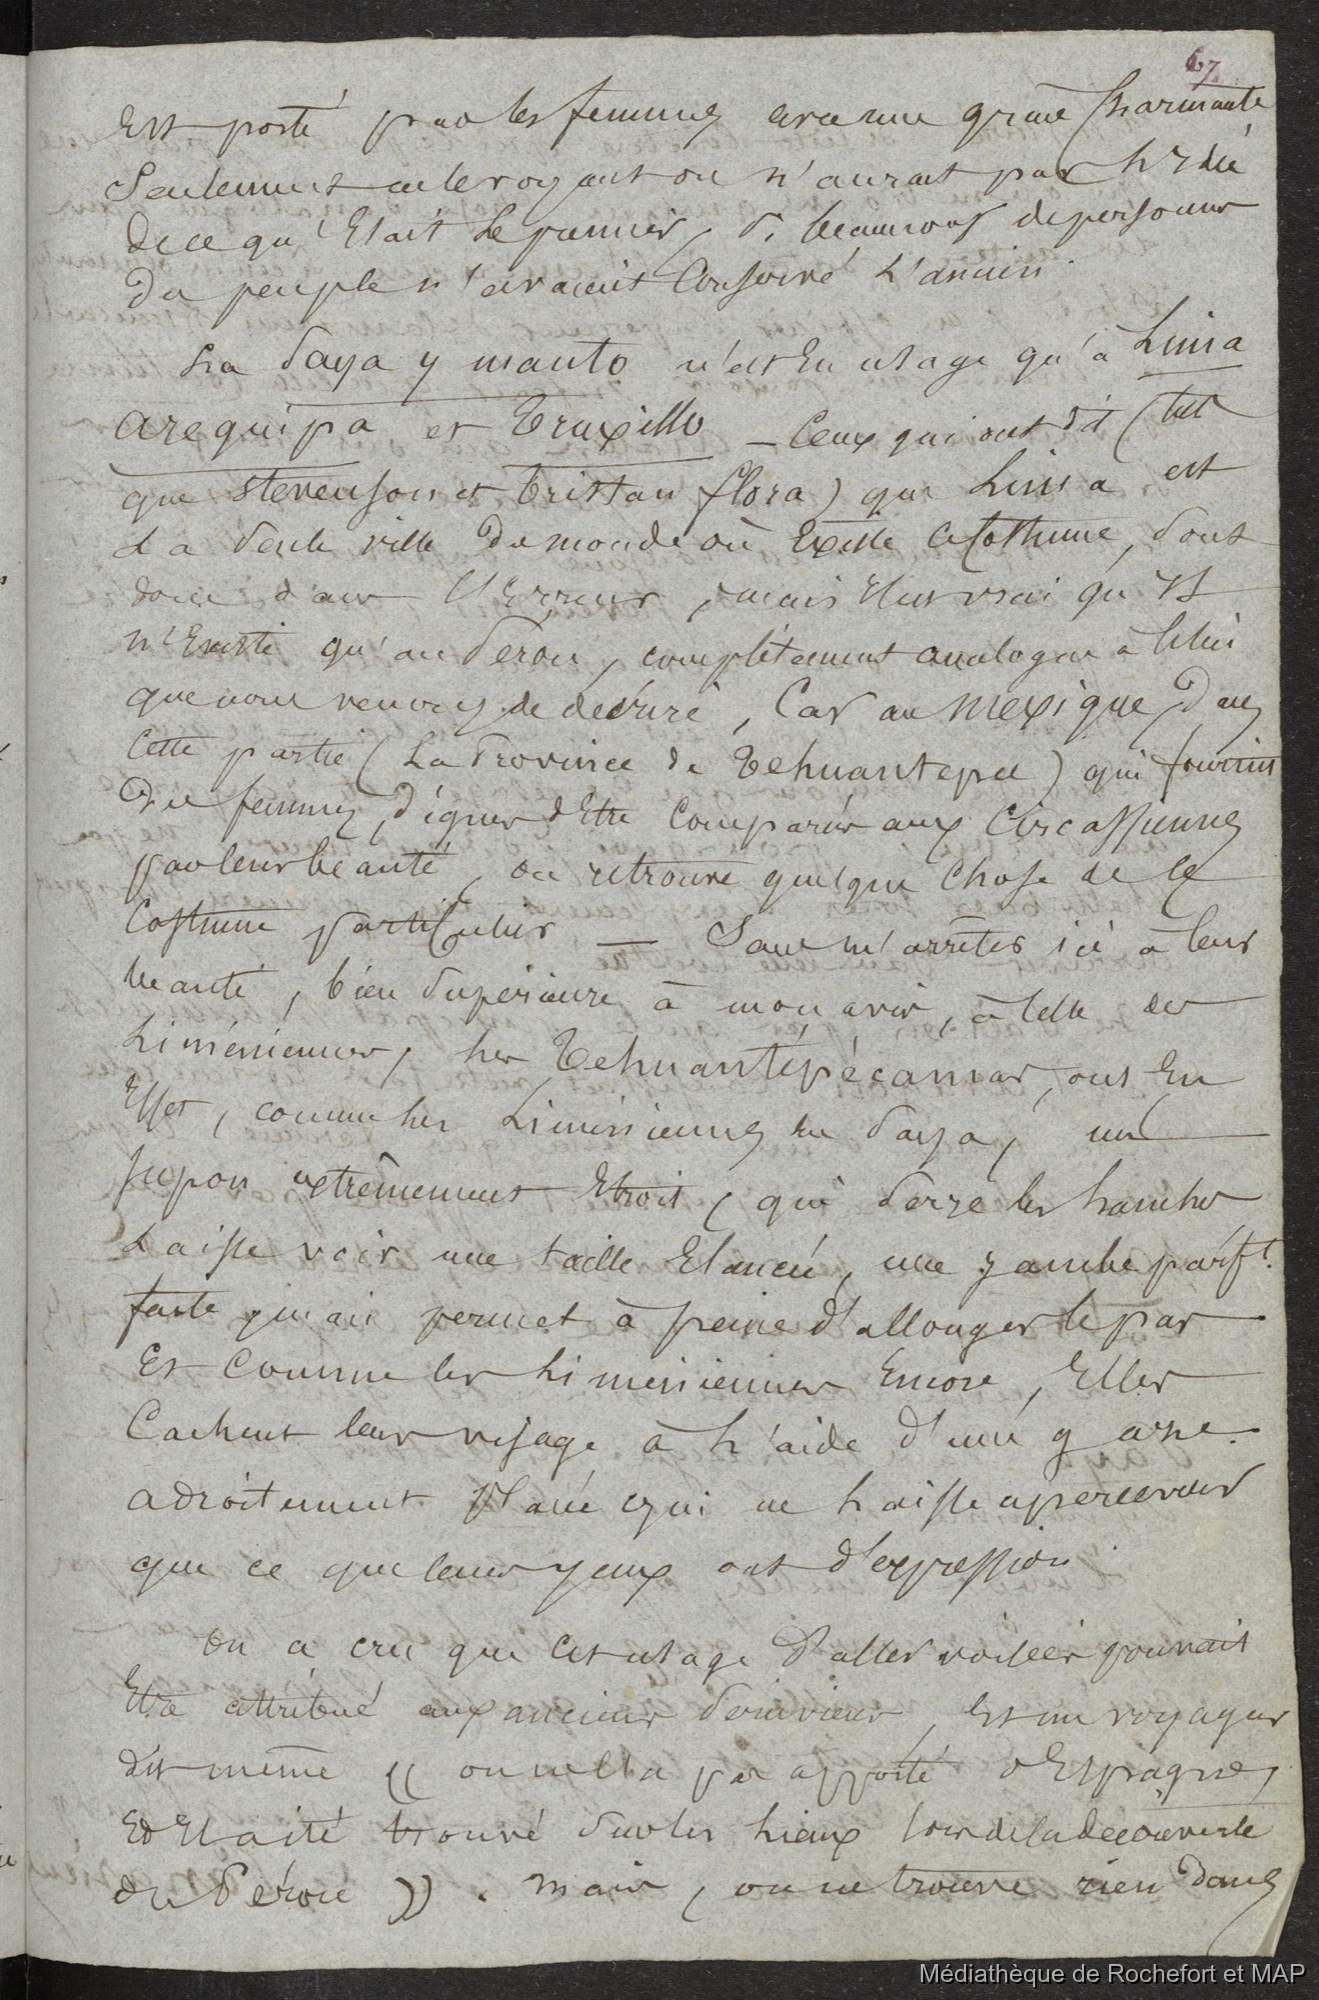 67
Est porté par les femmes avec une grâce charmante
Seulement en le voyant on n'aurait pas l'idée
de ce qu'Etait le premier, si beaucoup de personnes
du peuple n'avaient Conservé l'ancien.
La Saya y manto n'est En usage qu'à Lima
arequipa et Truxillo — Ceux qui ont dit (tels
que Stevenson et Tristan flora) que Lima est
La Seule ville du monde où Existe ce Costume, sont
donc dans l'Erreur, mais Il est vrai qu'Il
n'Existe qu'au Pérou, complétement analogue à Celui
que nous venons de décrire, Car au Mexique, dans
Cette partie (La Province de Tehuantepec) qui fournit
des femmes, dignes d'Etre Comparées aux Circassiennes
par leur beauté, on retrouve quelque Chose de Ce
Costume particulier — Sans m'arrêter ici à leur
beauté, bien Supérieure à mon avis, à Celle des
Liméniennes, les Tehuantépécannas, ont En
Effet, comme les Liméniennes En Saya, un
Jupon extrêmement Etroit, qui Serre les hanches
Laisse voir une taille Elancée, une Jambe parft.
faite, mais permet à peine d'allonger le pas
Et Comme les Liméniennes Encore, Elles
Cachent leur visage à l'aide d'une gaze
adroitement Placée qui ne Laisse apercevoir
que ce que leurs yeux ont d'expression.
On a cru que Cet usage d'aller voilées pouvait
Etre attribué aux anciens Péruviens, Et un voyageur
dit même (( on ne l'a pas apporté d'Espagne,
Et Il a été trouvé Sur les Lieux lors de la découverte
du Pérou )). Mais, on ne trouve rien dans
Médiathèque de Rochefort et MAP